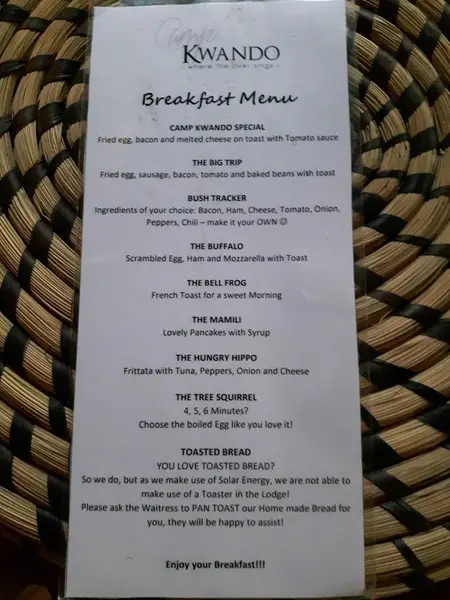 Camp
KWANDO
- where the river sings -
Breakfast Menu
CAMP KWANDO SPECIAL
Fried egg, bacon and melted cheese on toast with Tomato sauce
THE BIG TRIP
Fried egg, sausage, bacon, tomato and baked beans with toast
BUSH TRACKER
Ingredients of your choice: Bacon, Ham, Cheese, Tomato, Onion,
Peppers, Chili – make it your OWN ☺
THE BUFFALO
Scrambled Egg, Ham and Mozzarella with Toast
THE BELL FROG
French Toast for a sweet Morning
THE MAMILI
Lovely Pancakes with Syrup
THE HUNGRY HIPPO
Frittata with Tuna, Peppers, Onion and Cheese
THE TREE SQUIRREL
4, 5, 6 Minutes?
Choose the boiled Egg like you love it!
TOASTED BREAD
YOU LOVE TOASTED BREAD?
So we do, but as we make use of Solar Energy, we are not able to
make use of a Toaster in the Lodge!
Please ask the Waitress to PAN TOAST our Home made Bread for
you, they will be happy to assist!
Enjoy your Breakfast!!!